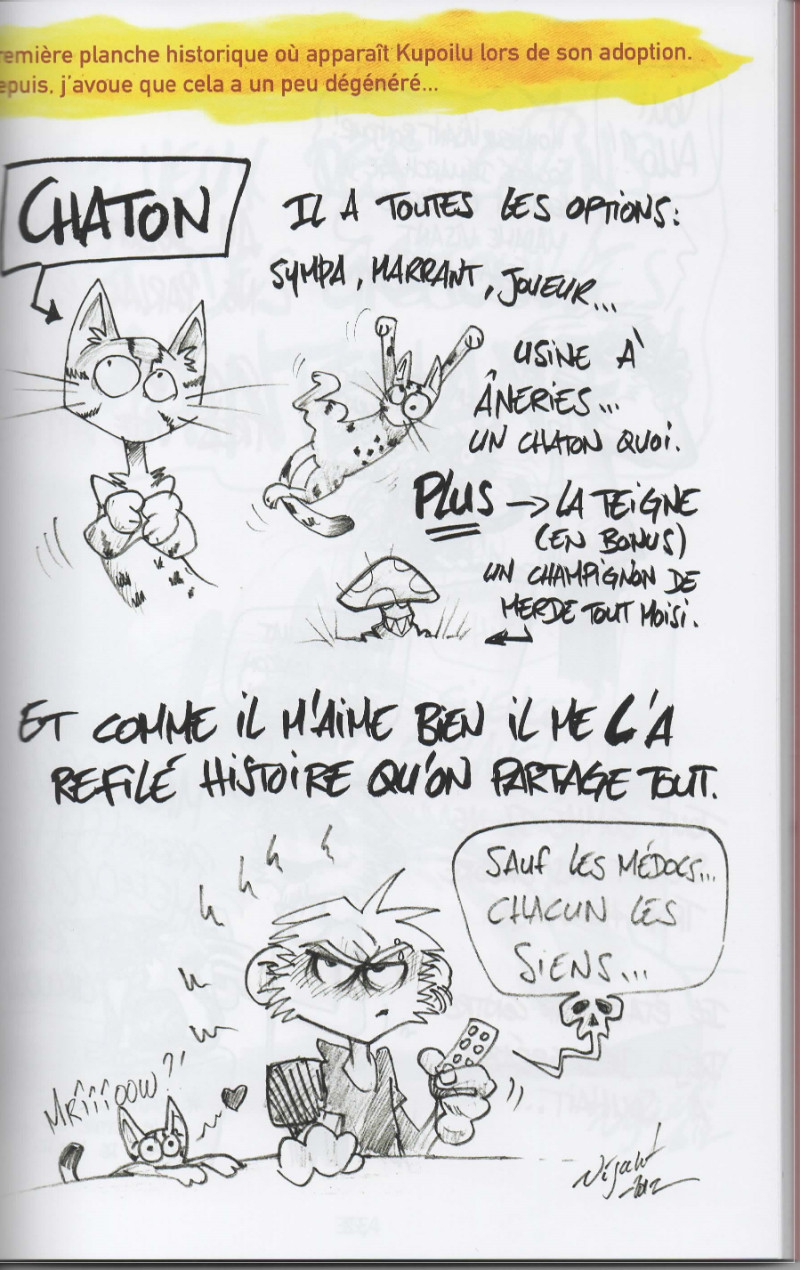 remière planche historique où apparaît Kupoilu lors de son adoption.
epuis, j'avoue que cela a un peu dégénéré...
CHATON
IL A TOUTES LES OPTIONS:
SYMPA, MARRANT, JOUEUR...
USINE À
ÂNERIES...
UN CHATON QUOI.
PLUS → LA TEIGNE
(EN BONUS)
UN CHAMPIGNON DE
MERDE TOUT MOISI.
ET COMME IL M'AIME BIEN IL ME L'A
REFILÉ HISTOIRE QU'ON PARTAGE TOUT.
SAUF LES MÉDOCS...
CHACUN LES
SIENS...
MRÎÎÎOOW?!
2012